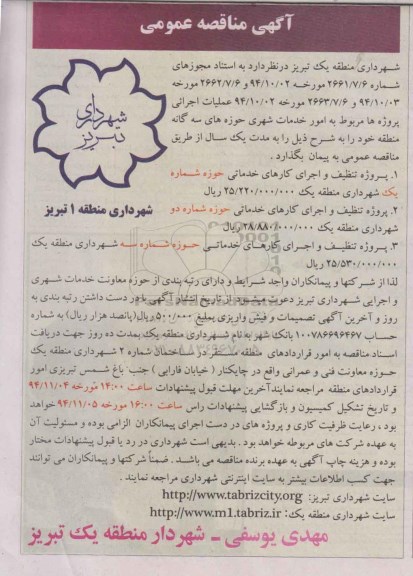 آگهی مناقصه عمومی
شهرداری تبریز
شهرداری منطقه ۱ تبریز
شهرداری منطقه یک تبریز درنظردارد به استناد مجوزهای
شماره ۲۶۶۱/۷/۶ مورخه ۹۴/۱۰/۰۲ و ۲۶۶۲/۷/۶ مورخه
۹۴/۱۰/۰۳ و ۲۶۶۳/۷/۶ مورخه ۹۴/۱۰/۰۲ عملیات اجرائی
پروژه ها مربوط به امور خدمات شهری حوزه های سه گانه
منطقه خود را به شرح ذیل را به مدت یک سال از طریق
مناقصه عمومی به پیمان بگذارد .
۱. پروژه تنظیف و اجرای کارهای خدماتی حوزه شماره
یک شهرداری منطقه یک ۲۵/۲۲۰/۰۰۰/۰۰۰ ریال
۲. پروژه تنظیف و اجرای کارهای خدماتی حوزه شماره دو
شهرداری منطقه یک ۲۸/۸۸۰/۰۰۰/۰۰۰ ریال
۳. پروژه تنظیف و اجرای کارهای خدماتی حوزه شماره سه شهرداری منطقه یک
۲۵/۵۳۰/۰۰۰/۰۰۰ ریال
لذا از شرکتها و پیمانکاران واجد شرایط و دارای رتبه بندی از حوزه معاونت خدمات شهری
و اجرایی شهرداری تبریز دعوت میشود از تاریخ انتشار آگهی با در دست داشتن رتبه بندی به
روز و آخرین آگهی تصمیمات و فیش واریزی بمبلغ ۵۰۰/۰۰۰ ریال(پانصد هزار ریال) به شماره
حساب ۱۰۰۷۸۶۶۹۶۴۶۷ بانک شهر به نام شهرداری منطقه یک بمدت ده روز جهت دریافت
اسناد مناقصه به امور قراردادهای منطقه مستقر در ساختمان شماره ۲ شهرداری منطقه یک
حوزه معاونت فنی و عمرانی واقع در چایکنار ( خیابان فارابی ) جنب باغ شمس تبریزی امور
قراردادهای منطقه مراجعه نمایند.آخرین مهلت قبول پیشنهادات ساعت ۱۴:۰۰ مورخه ۹۴/۱۱/۰۴
و تاریخ تشکیل کمیسیون و بازگشایی پیشنهادات راس ساعت ۱۶:۰۰ مورخه ۹۴/۱۱/۰۵ خواهد
بود ، رعایت ظرفیت کاری و پروژه های در دست اجرای پیمانکاران الزامی بوده و مسئولیت آن
به عهده شرکت های مربوطه خواهد بود . بدیهی است شهرداری در رد یا قبول پیشنهادات مختار
بوده و هزینه چاپ آگهی به عهده برنده مناقصه می باشد. ضمناً شرکتها و پیمانکاران می توانند
جهت کسب اطلاعات بیشتر به سایت اینترنتی شهرداری مراجعه نمایند .
سایت شهرداری تبریز: http://www.tabrizcity.org
سایت شهرداری منطقه یک: http://www.m1.tabriz.ir
مهدی یوسفی ـ شهردار منطقه یک تبریز